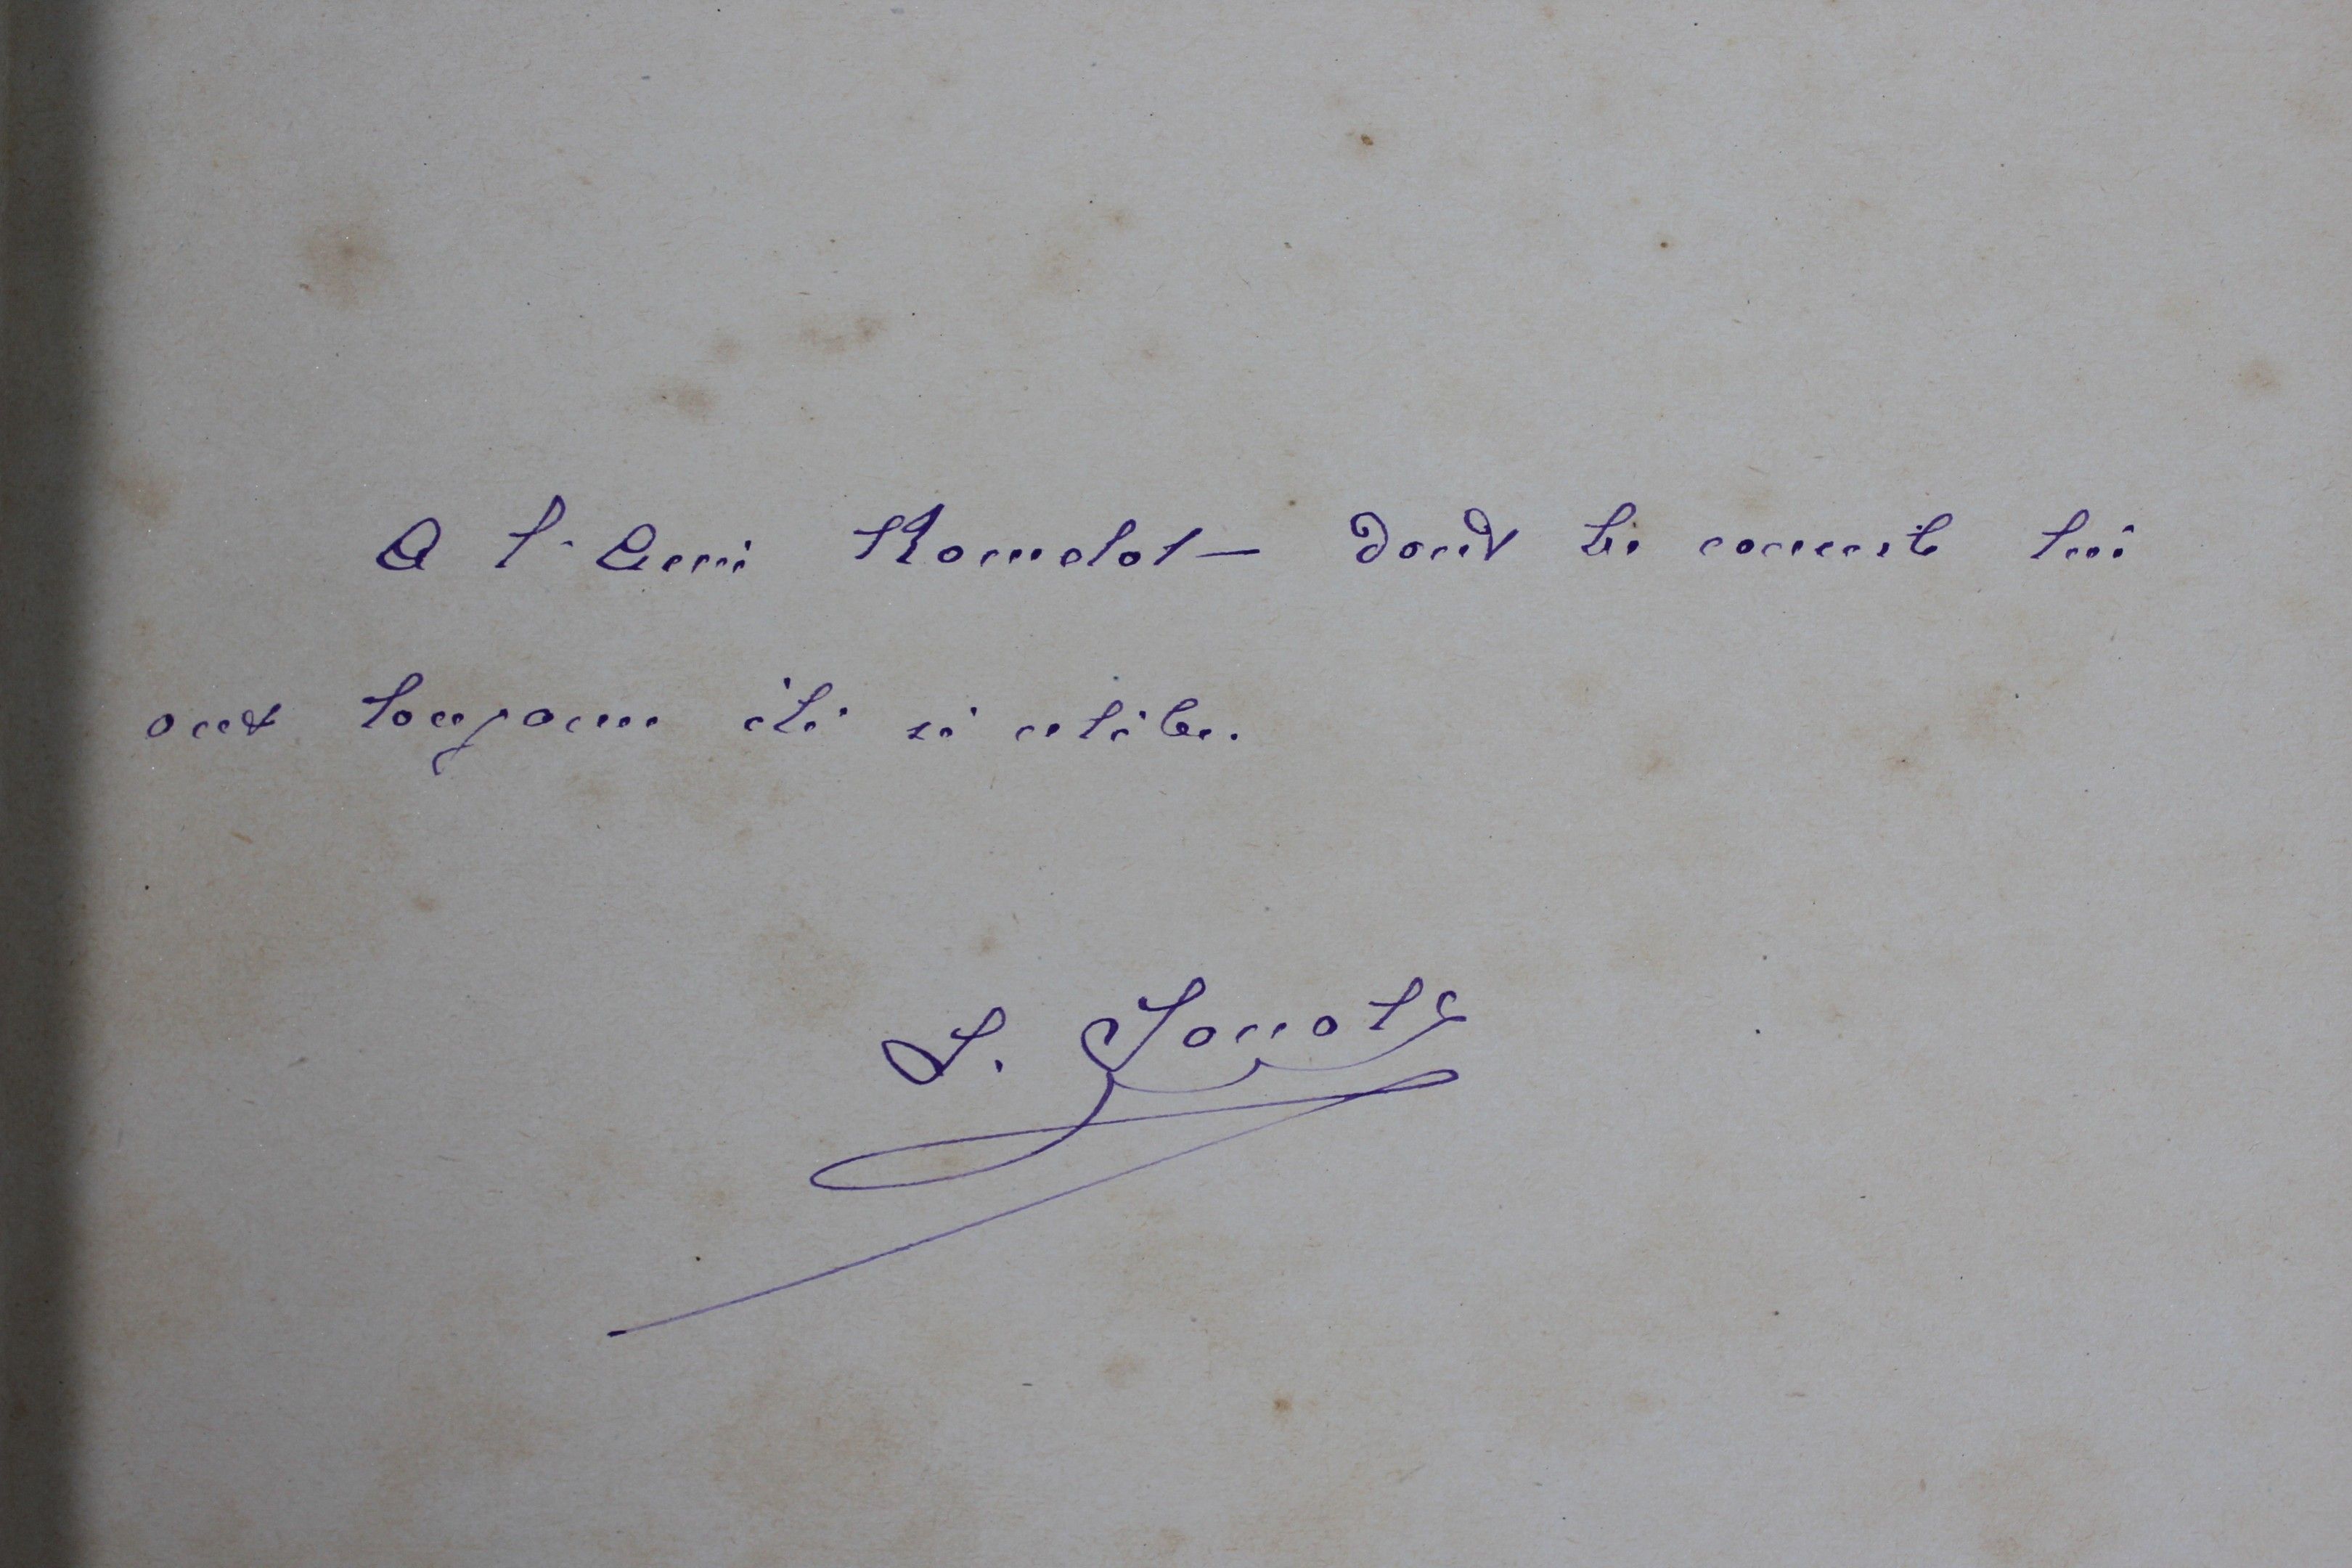 A l'Ami Romelot — dont les conseils lui
ont toujours été si utiles.